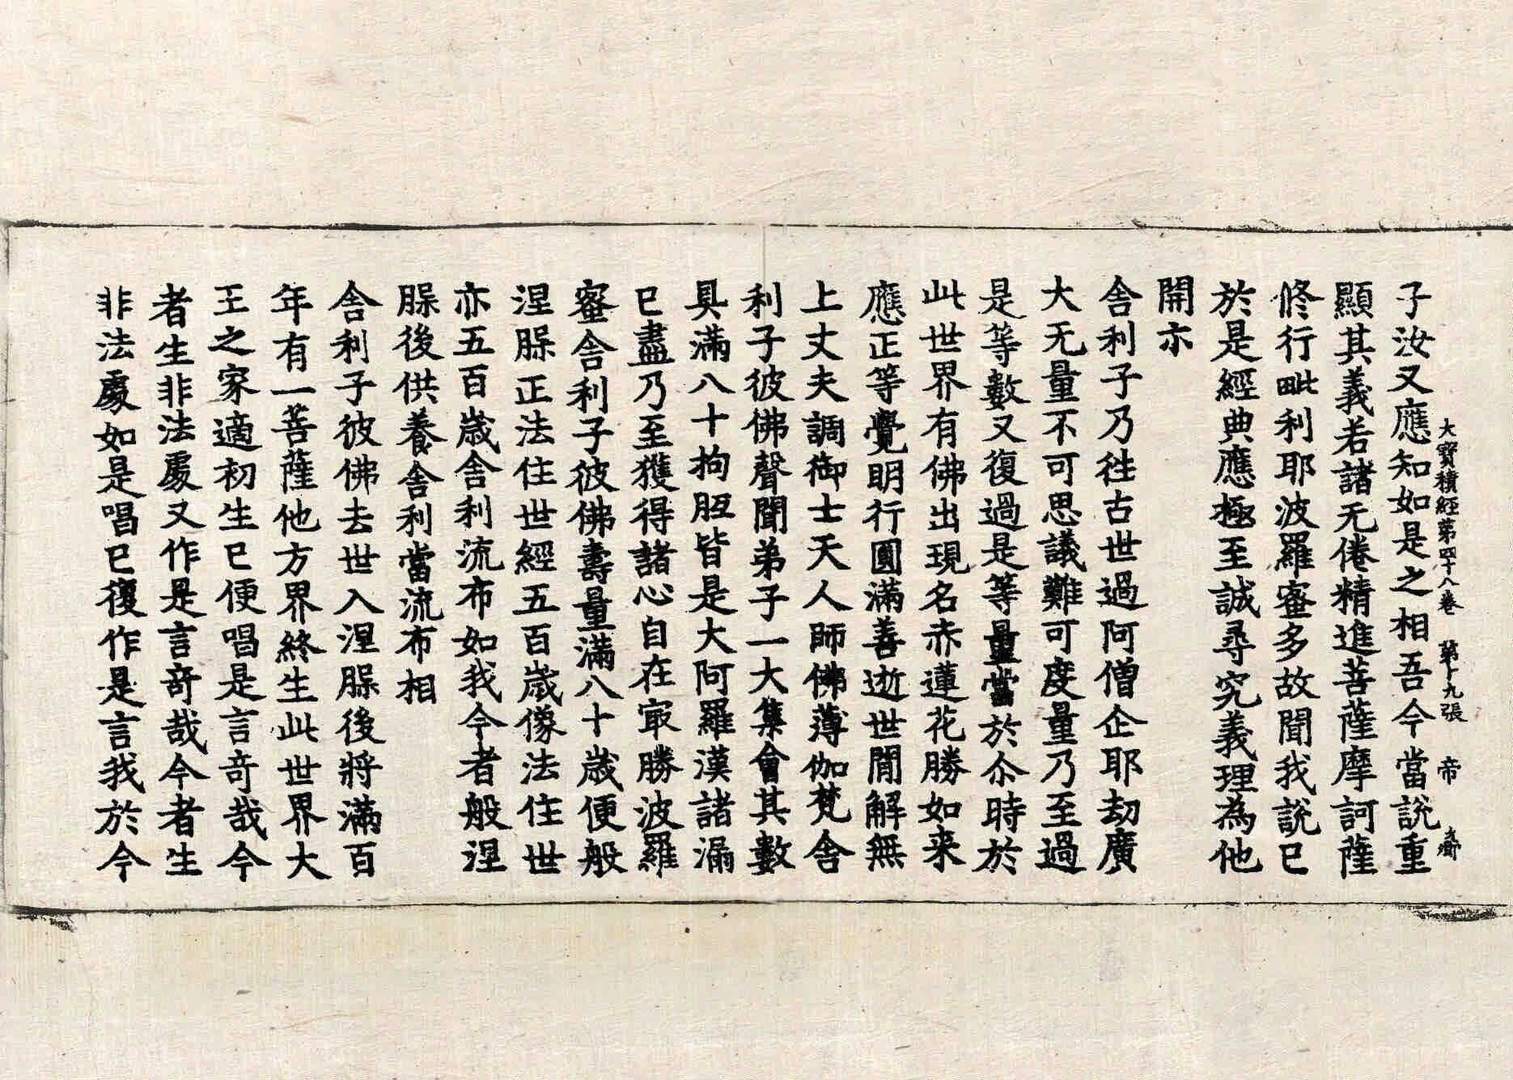 大寶積經第四十八卷 第十九張 帝
子汝又應知如是之相吾今當說重
顯其義若諸无倦精進菩薩摩訶薩
修行毗利耶波羅蜜多故聞我說已
於是經典應極至誠尋究義理為他
開示
舍利子乃往古世過阿僧企耶劫廣
大无量不可思議難可度量乃至過
是等數又復過是等量當於尒時於
此世界有佛出現名赤蓮花勝如来
應正等覺明行圓滿善逝世間解無
上丈夫調御士天人師佛薄伽梵舍
利子彼佛聲聞弟子一大集會其數
具滿八十拘胝皆是大阿羅漢諸漏
已盡乃至獲得諸心自在寂勝波羅
蜜舍利子彼佛壽量滿八十歲便般
涅槃正法住世經五百歲像法住世
亦五百歲舍利流布如我今者般涅
槃後供養舍利當流布相
舍利子彼佛去世入涅槃後將滿百
年有一菩薩他方界終生此世界大
王之家適初生已便唱是言竒哉今
者生非法處又作是言竒哉今者生
非法處如是唱已復作是言我於今